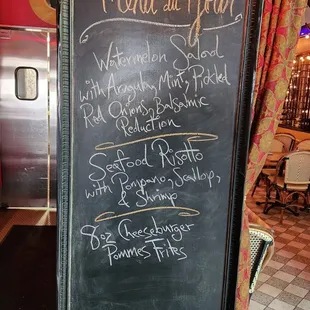 Menu du Jour
Watermelon Salad
with Arugula, Mint, Pickled
Red Onions, Balsamic
Reduction
Seafood Risotto
with Pompano, Scallop,
& Shrimp
8oz Cheeseburger
Pommes Frites